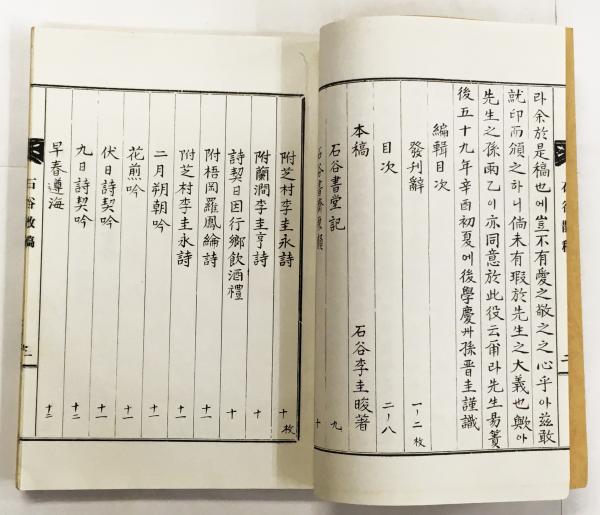 라余於是稿也에豈不有愛之敬之之心乎아兹敢
就印而頒之하니倘未有瑕於先生之大義也歟아
先生之孫雨乙이亦同意於此役云爾라先生易簀
後五十九年辛酉初夏에後學慶州孫晋圭謹識
編輯目次
發刊辭 一~二枚
目次 二~八
本稿 石谷李圭晙著
石谷書堂記 九
石谷書 十
附芝村李圭永詩 十枚
附蘭澗李圭亨詩 十
詩契日因行鄉飲酒禮 十
附梧岡羅鳳綸詩 十一
附芝村李圭永詩 十一
二月朔朝吟 十一
花煎吟 十一
伏日詩契吟 十一
九日詩契吟 十二
早春遵海 十二
石谷散稿